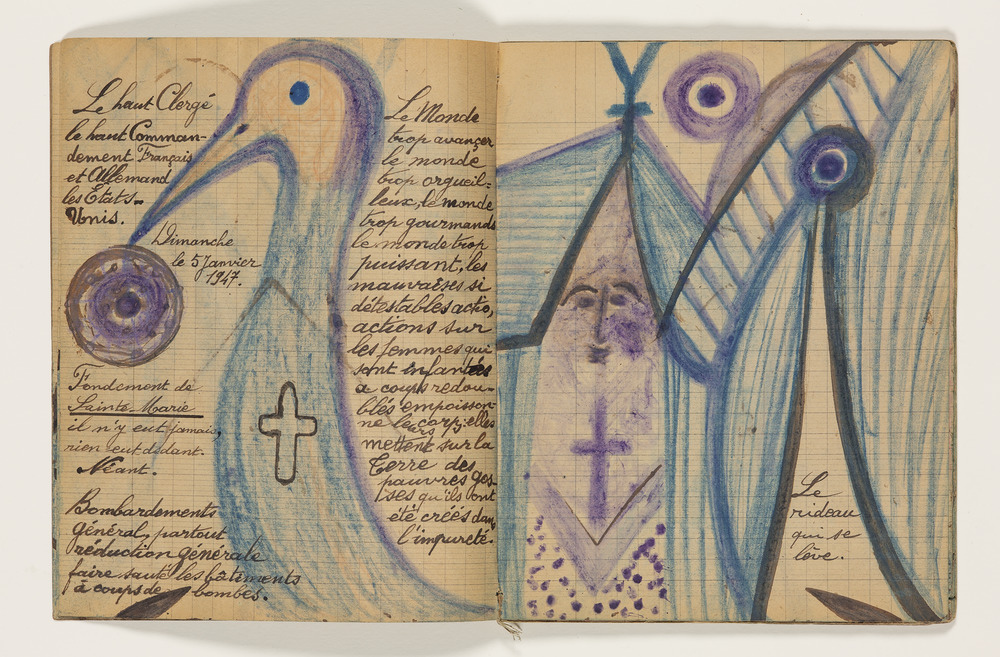 Le haut Clergé
le haut Comman-
dement Français
et Allemand
les États-
Unis.
Dimanche
le 5 Janvier
1947.
Fondement de
Sainte-Marie
il n'y eut jamais,
rien eut didant.
Néant.
Bombardements
général, partout
réduction générale
faire sauté les bâtiments
à coups de bombes.
Le Monde
trop avançer
le monde
trop orgueil=
leux, le monde
trop gourmands
le monde trop
puissant, les
mauvaises si
détestables actio,
actions sur
les femmes qui
sont enfantées
à coups redou-
blés empoisson-
ne leurs corps; elles
mettent sur la
Terre des
pauvres gos-
ses qu'ils ont
été créés dans
l'impureté.
Le
rideau
qui se
lève.